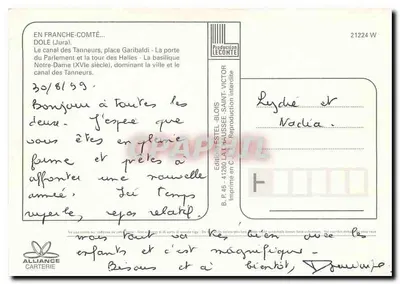 EN FRANCHE-COMTÉ...
DOLE (Jura).
Le canal des Tanneurs, place Garibaldi - La porte
du Parlement et la tour des Halles - La basilique
Notre-Dame (XVIe siècle), dominant la ville et le
canal des Tanneurs.
30/8/99.
Bonjour à toutes les
deux. J'espère que
vous êtes en pleine
forme et prêtes à
affronter une nouvelle
année. Ici temps
repos relatif.
mais tout va très bien avec les
enfants et c'est magnifique.
Bisous et à bientôt,
ALLIANCE
CARTERIE
Production
LECONTE
Editions ESTEL-BLOIS
B.P. 45 - 41260 LA CHAUSSÉE SAINT-VICTOR
Imprimé en C.E.E. Reproduction interdite
21224 W
Lydie et
Nadia.